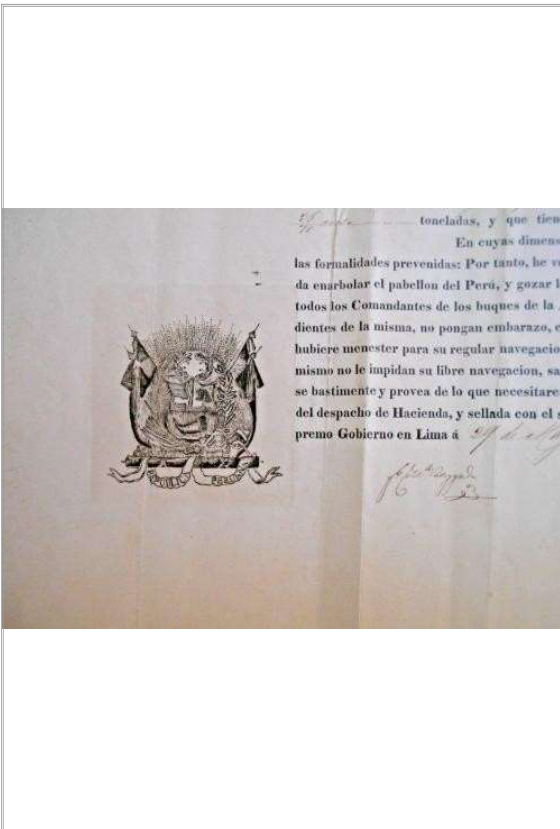 toneladas, y que tien
En cuyas dimens
las formalidades prevenidas: Por tanto, he v
da enarbolar el pabellon del Perú, y gozar l
todos los Comandantes de los buques de la
dientes de la misma, no pongan embarazo,
hubiere menester para su regular navegacio
mismo no le impidan su libre navegacion, sa
se bastimente y provea de lo que necesitare
del despacho de Hacienda, y sellada con el s
premo Gobierno en Lima á 29 de
REPUBLICA PERUANA